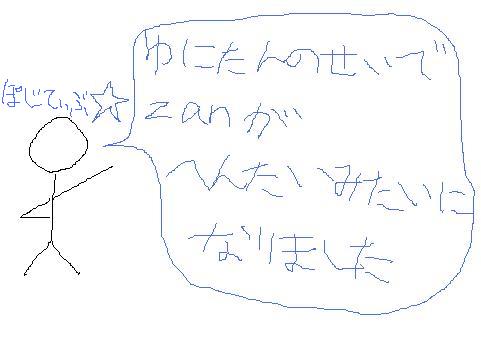 ぽじてぃぶ☆
ゆにたんのせいで
zanが
へんたいみたいに
なりました